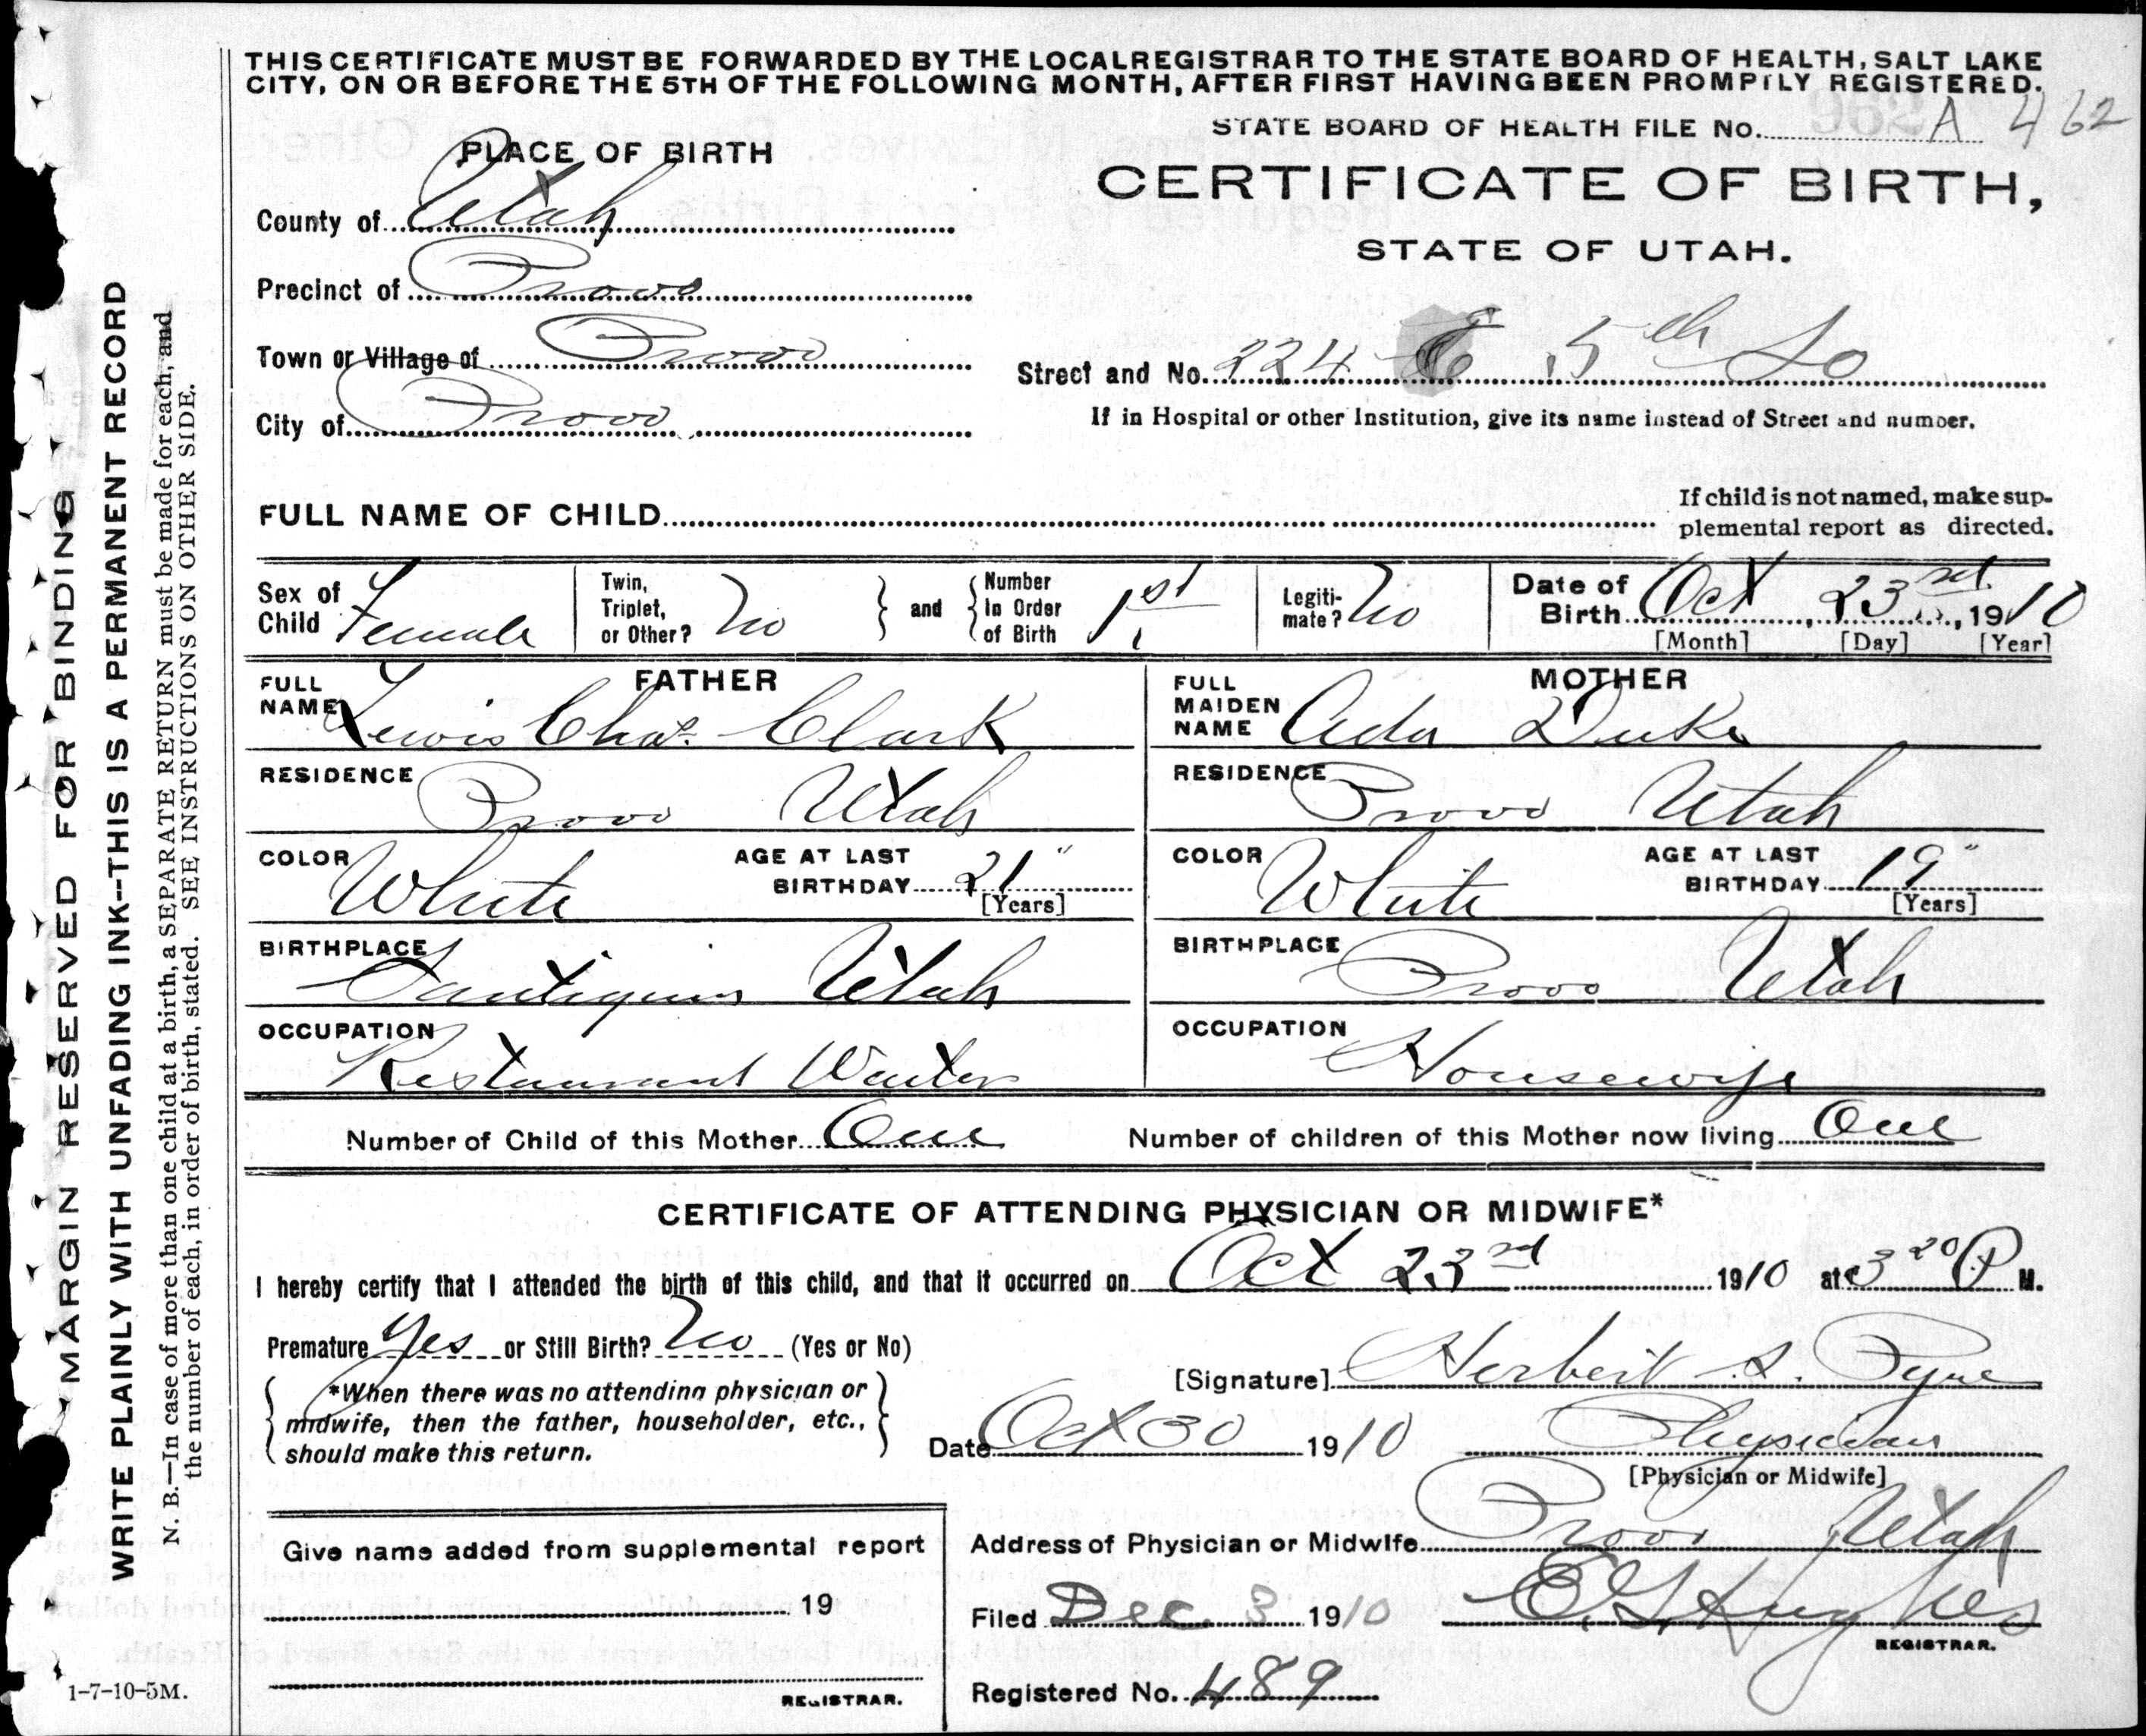 THIS CERTIFICATE MUST BE FORWARDED BY THE LOCAL REGISTRAR TO THE STATE BOARD OF HEALTH, SALT LAKE
CITY, ON OR BEFORE THE 5TH OF THE FOLLOWING MONTH, AFTER FIRST HAVING BEEN PROMPTLY REGISTERED.
STATE BOARD OF HEALTH FILE No. A 462
PLACE OF BIRTH
CERTIFICATE OF BIRTH,
STATE OF UTAH.
County of Utah
Precinct of Provo
Town or Village of Provo
Street and No. 224 E 5th So
City of Provo
If in Hospital or other Institution, give its name instead of Street and number.
FULL NAME OF CHILD
If child is not named, make sup-
plemental report as directed.
Sex of Child Female
Twin, Triplet, or Other? No
and
Number In Order of Birth 1st
Legiti-mate? No
Date of Birth Oct 23rd, 1910
[Month] [Day] [Year]
FATHER
FULL NAME Lewis Chas. Clark
MOTHER
FULL MAIDEN NAME Ada Duke
RESIDENCE Provo Utah
RESIDENCE Provo Utah
COLOR White AGE AT LAST BIRTHDAY 21 " [Years]
COLOR White AGE AT LAST BIRTHDAY 19 " [Years]
BIRTHPLACE Santiquin Utah
BIRTHPLACE Provo Utah
OCCUPATION Restaurant Waiter
OCCUPATION Housewife
Number of Child of this Mother One
Number of children of this Mother now living One
CERTIFICATE OF ATTENDING PHYSICIAN OR MIDWIFE*
I hereby certify that I attended the birth of this child, and that it occurred on Oct 23rd 1910 at 3 20 P. M.
Premature Yes or Still Birth? No (Yes or No)
[Signature] Herbert S. Pyne
*When there was no attending physician or
midwife, then the father, householder, etc.,
should make this return.
Date Oct 30 1910
Physician
[Physician or Midwife]
Give name added from supplemental report
19
REGISTRAR.
Address of Physician or Midwife Provo Utah
Filed Dec. 3 1910 E G Hughes
REGISTRAR.
Registered No. 489
MARGIN RESERVED FOR BINDING
WRITE PLAINLY WITH UNFADING INK--THIS IS A PERMANENT RECORD
N. B.—In case of more than one child at a birth, a SEPARATE RETURN must be made for each, and
the number of each, in order of birth, stated. SEE INSTRUCTIONS ON OTHER SIDE.
1-7-10-5M.